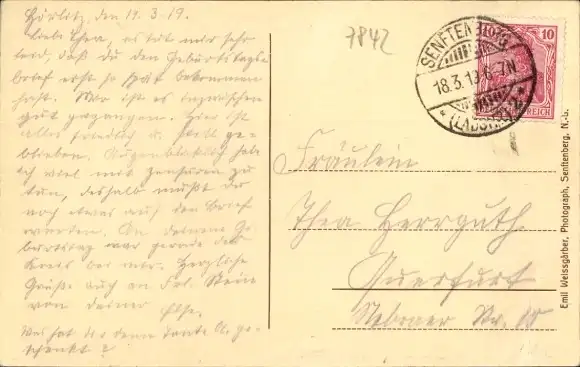 Hörlitz, den 19.3.19.
Liebe Thea, es tut mir sehr
leid, daß du den Geburtstags
brief erst so spät bekommen
hast. Mir ist es inzwischen
gut gegangen. Hier ist
alles friedlich u. still ge-
blieben. Augenblicklich hab
ich viel mit Zensuren zu
tun, deshalb mußt Du
noch etwas auf den Brief
warten. An deinem Ge-
burtstag war gerade der
Kreis bei mir. Herzliche
Grüße auch an Frl. Stein
von deiner Else.
Was hat dir denn Tante A. ge-
schenkt?
7842
SENFTENBERG
18.3.19. 6-7N
* (LAUSITZ) *
10
REICH
Fräulein
Thea Herrguth
Querfurt
Nebraer Str. 10
Emil Weissgärber, Photograph, Senftenberg, N.-L.